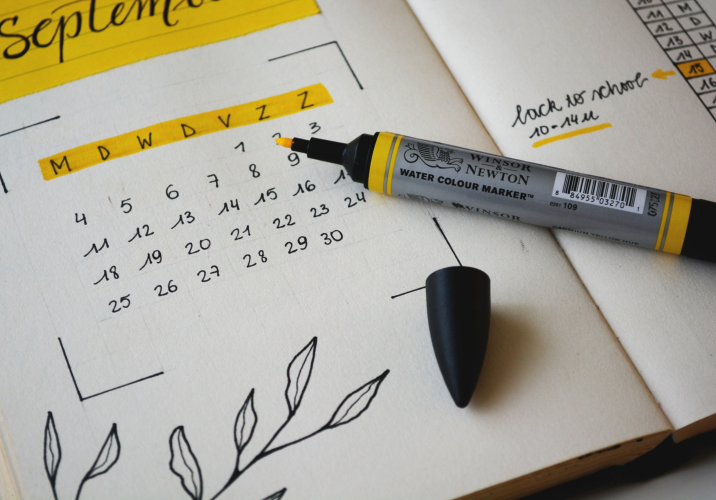 M D W D V Z Z
1 2 3
4 5 6 7 8 9
11 12 13 14 15 16
18 19 20 21 22 23 24
25 26 27 28 29 30
WINSOR
&
NEWTON
WATER COLOUR MARKER™
WINSOR
8 84955 03270 1
109
back to school
10-14u
11 M
12 D
13 W
14
15
16